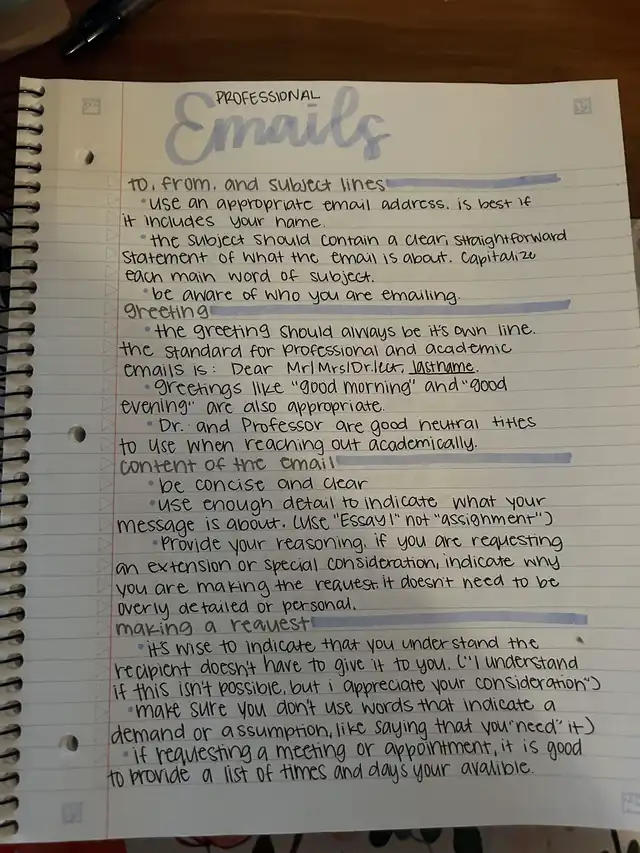 PROFESSIONAL
Emails
to, from, and subject lines
• use an appropriate email address. is best if
it includes your name.
• the subject should contain a clear, straightforward
statement of what the email is about. Capitalize
each main word of subject.
• be aware of who you are emailing.
greeting
• the greeting should always be it's own line.
the standard for professional and academic
emails is: Dear Mr/Mrs/Dr./ect, lastname.
• greetings like "good morning" and "good
evening" are also appropriate.
• Dr. and Professor are good neutral titles
to use when reaching out academically.
content of the email
• be concise and clear
• use enough detail to indicate what your
message is about. (use "Essay 1" not "assignment")
• Provide your reasoning. if you are requesting
an extension or special consideration, indicate why
you are making the request. it doesn't need to be
overly detailed or personal.
making a request
• it's wise to indicate that you understand the
recipient doesn't have to give it to you. ("I understand
if this isn't possible, but i appreciate your consideration")
• make sure you don't use words that indicate a
demand or assumption, like saying that you "need" it)
• if requesting a meeting or appointment, it is good
to provide a list of times and days your avalible.